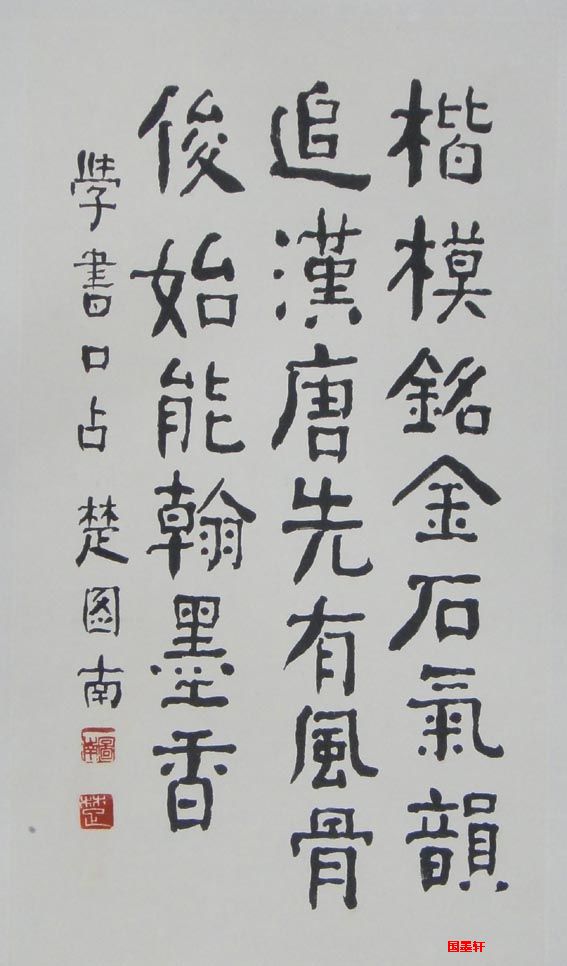 楷模銘金石氣韻
追漢唐先有風骨
俊始能翰墨香
學書口占 楚图南
圖南
楚
国墨轩